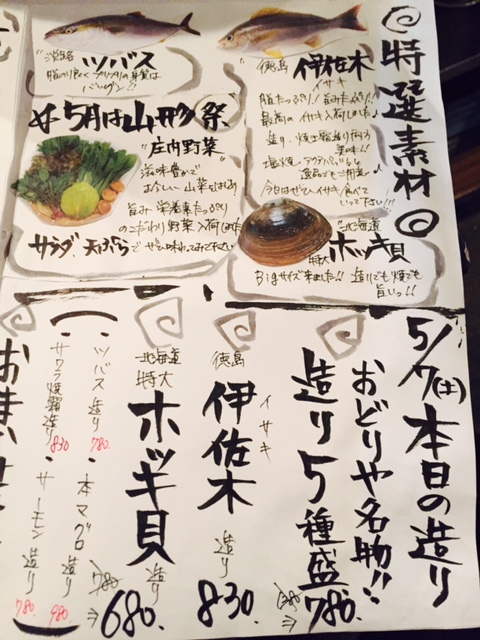 特選素材
徳島 伊佐木
イサキ
最高の イサキ 入荷しました
造り・焼霜造り何でも
美味!!
今日はぜひイサキ食べて
いって下さい!!!
淡路産 ツバス
脂のり良くプリプリの身質は
バツグン!!
5月は山形祭
"庄内野菜"
滋味豊かで
おいしい 山菜をはじめ
旨み・栄養素たっぷり
のこだわり野菜入荷しました
サラダ、天ぷらでぜひ味わってみて下さい
"北海道
特大 ホッキ貝
Bigサイズ来ました!! 造りでも焼でも
旨いっ!!
5/7(土) 本日の造り
おどりや名物!!
造り5種盛 780.
徳島 伊佐木 イサキ 造り 830.
北海道 特大 ホッキ貝 造り 780 ⇒ 680.
・ツバス造り 780.
・サワラ焼霜造り 830
・本マグロ造り 980.
・サーモン造り 780.